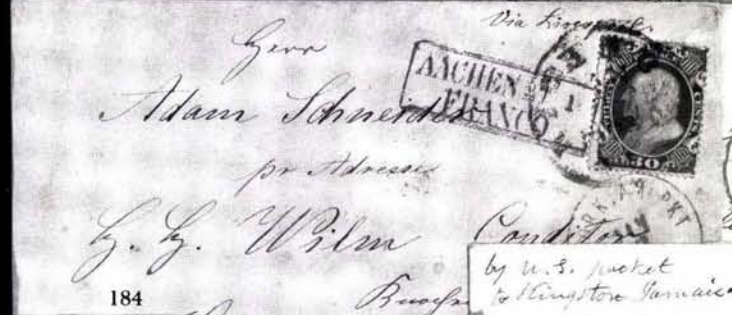 Via Liverpool
Herr
AACHEN
FRANCO
Adam Schneider
30
pr Adresse
PKT
H. H. Wilm Conditor
by U.S. packet
to Kingston Jamaica
184